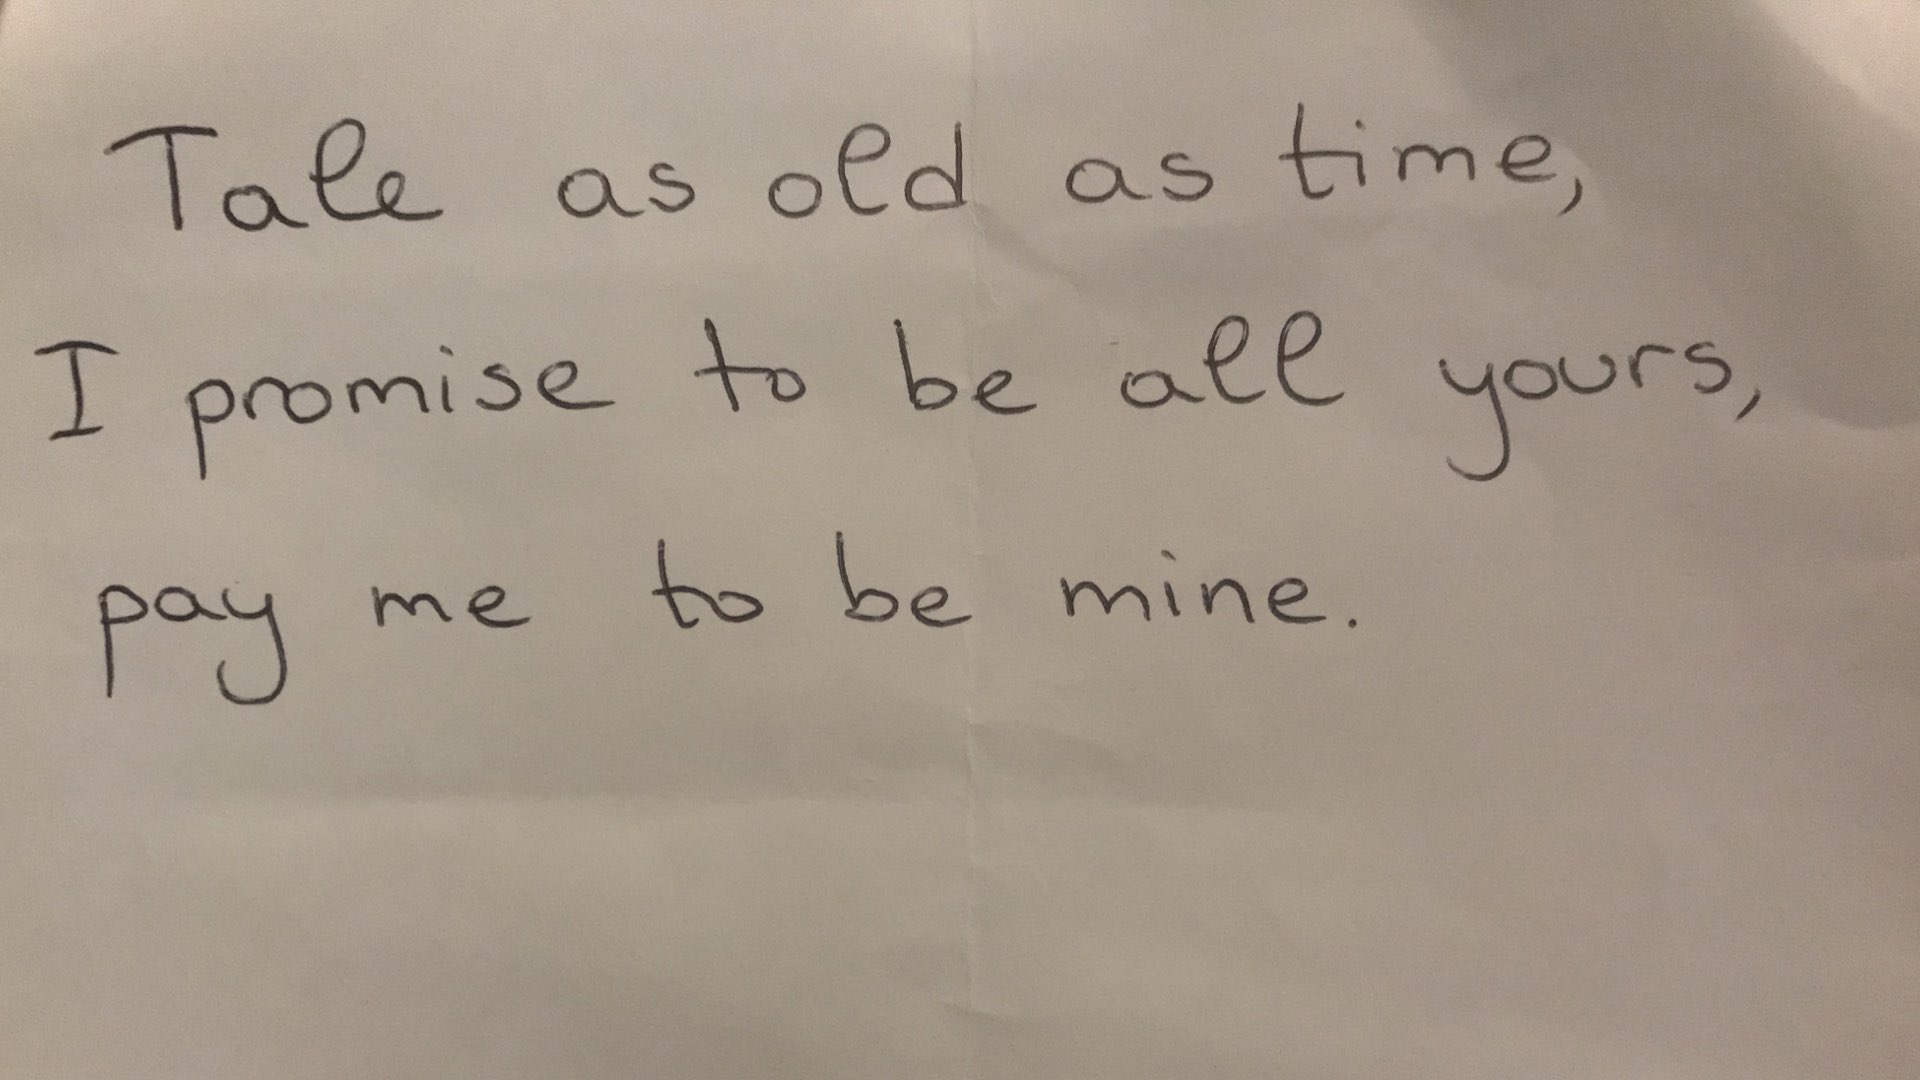 Tale as old as time,
I promise to be all yours,
pay me to be mine.